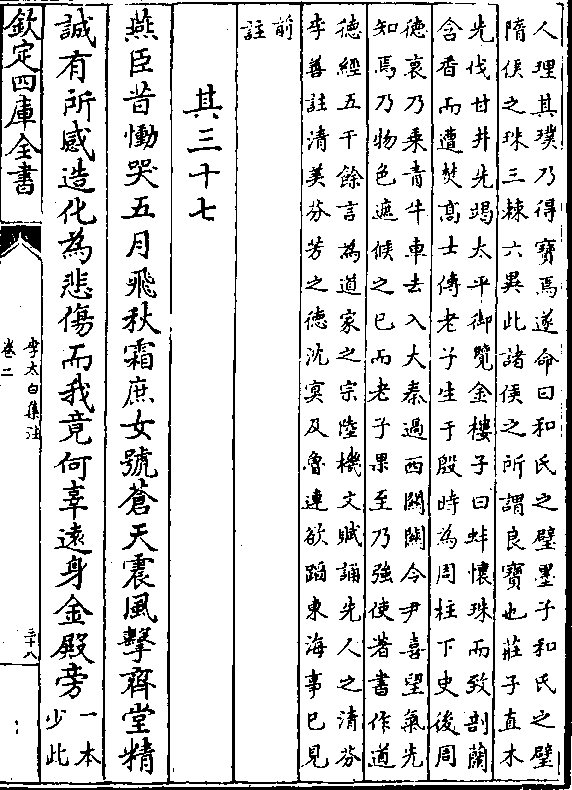 人理其璞乃得寶焉遂命曰和氏之璧墨子和氏之璧
隋侯之珠三棘六異此諸侯之所謂良寶也莊子直木
先伐甘井先竭太平御覽金樓子曰蚌懷珠而致剖蘭
含香而遭焚高士傳老子生于殷時為周柱下史後周
德衰乃乗青牛車去入大秦過西關關令尹喜望氣先
知焉乃物色遮候之已而老子果至乃強使著書作道
德經五千餘言為道家之宗陸機文賦誦先人之清芬
李善註清美芬芳之德沈冥及魯連欲蹈東海事已見
前
註
其三十七
燕臣昔慟哭五月飛秋霜庶女號蒼天震風擊齊堂精
誠有所感造化為悲傷而我竟何辜逺身金殿旁一本
少此
欽定四庫全書
李太白集注
卷二
三十八